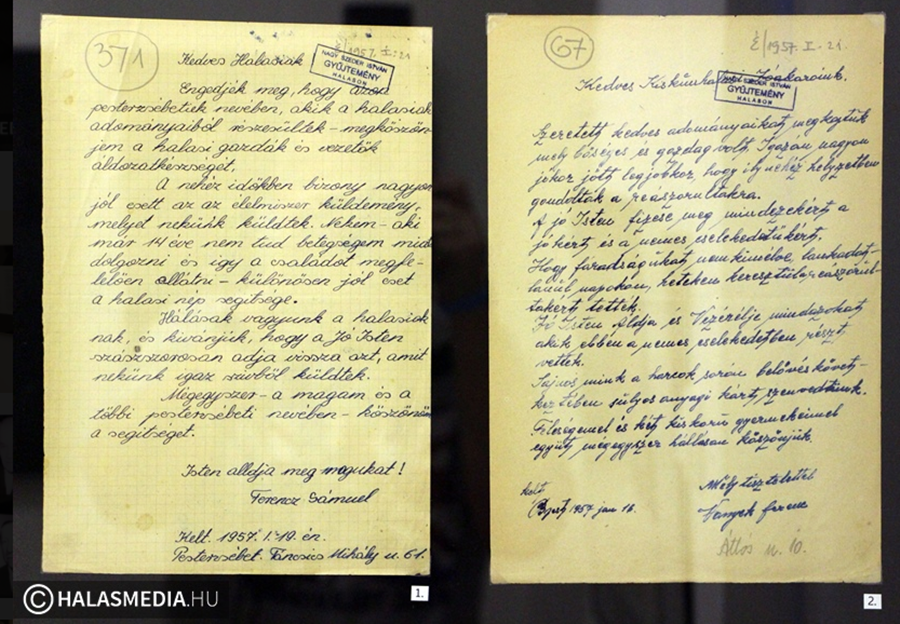 371
É/1957. I. 21
NAGY SZEDER ISTVÁN
GYŰJTEMÉNY
HALASON
Kedves Halasiak
Engedjék meg, hogy azon
pesterzsébetiek nevében, akik a halasiak
adományaiból részesültek - megköszön
jem a halasi gazdák és vezetők
áldozatkészségét.
A nehéz időkben bizony nagyon
jól esett az az élelmiszer küldemény,
melyet nekünk küldtek. Nekem - aki
már 14 éve nem tud betegségem miatt
dolgozni és igy a családot megfe-
lelően ellátni - különösen jól eset
a halasi nép segitsége.
Hálásak vagyunk a halasiok
nak, és kivánjuk, hogy a Jó Isten
százszorosan adja vissza azt, amit
nekünk igaz szivből küldtek.
Mégegyszer - a magam és a
többi pesterzsébeti nevében - köszönöm
a segitséget.
Isten álldja meg magukat!
Ferencz Sámuel
Kelt. 1957. I. 19. én.
Pesterzsébet. Táncsics Mihály u. 61.
1.
67
É/1957. I. 21.
NAGY SZEDER ISTVÁN
GYŰJTEMÉNY
HALASON
Kedves Kiskunhalasi
Szeretett kedves adományaikat megkaptuk
mely bőséges és gazdag volt. Igazán nagyon
jókor jött legjobkor, hogy ily nehéz helyzetben
gondoltak a reászorultakra.
A jó Isten fizesse meg mindezekért a
jókért és a nemes cselekedetükért.
Hogy fáradságukat nem kimélve, lankadat-
lanul napokon, heteken keresztül a rászorul-
takért tették.
Jó Isten áldja és Vezérelje mindazokat
akik ebben a nemes cselekedetben részt
vettek.
Sajnos mink a harcok során belövés követ-
keztében súlyos anyagi kárt szenvedtünk.
Feleségemel és két kiskorú gyermekeimel
együtt mégegyszer hálásan köszönjük.
kelt
Bpest 1957 jan 16.
Mély tisztelettel
Ferenc
Attös u. 10.
2.
©HALASMEDIA.HU